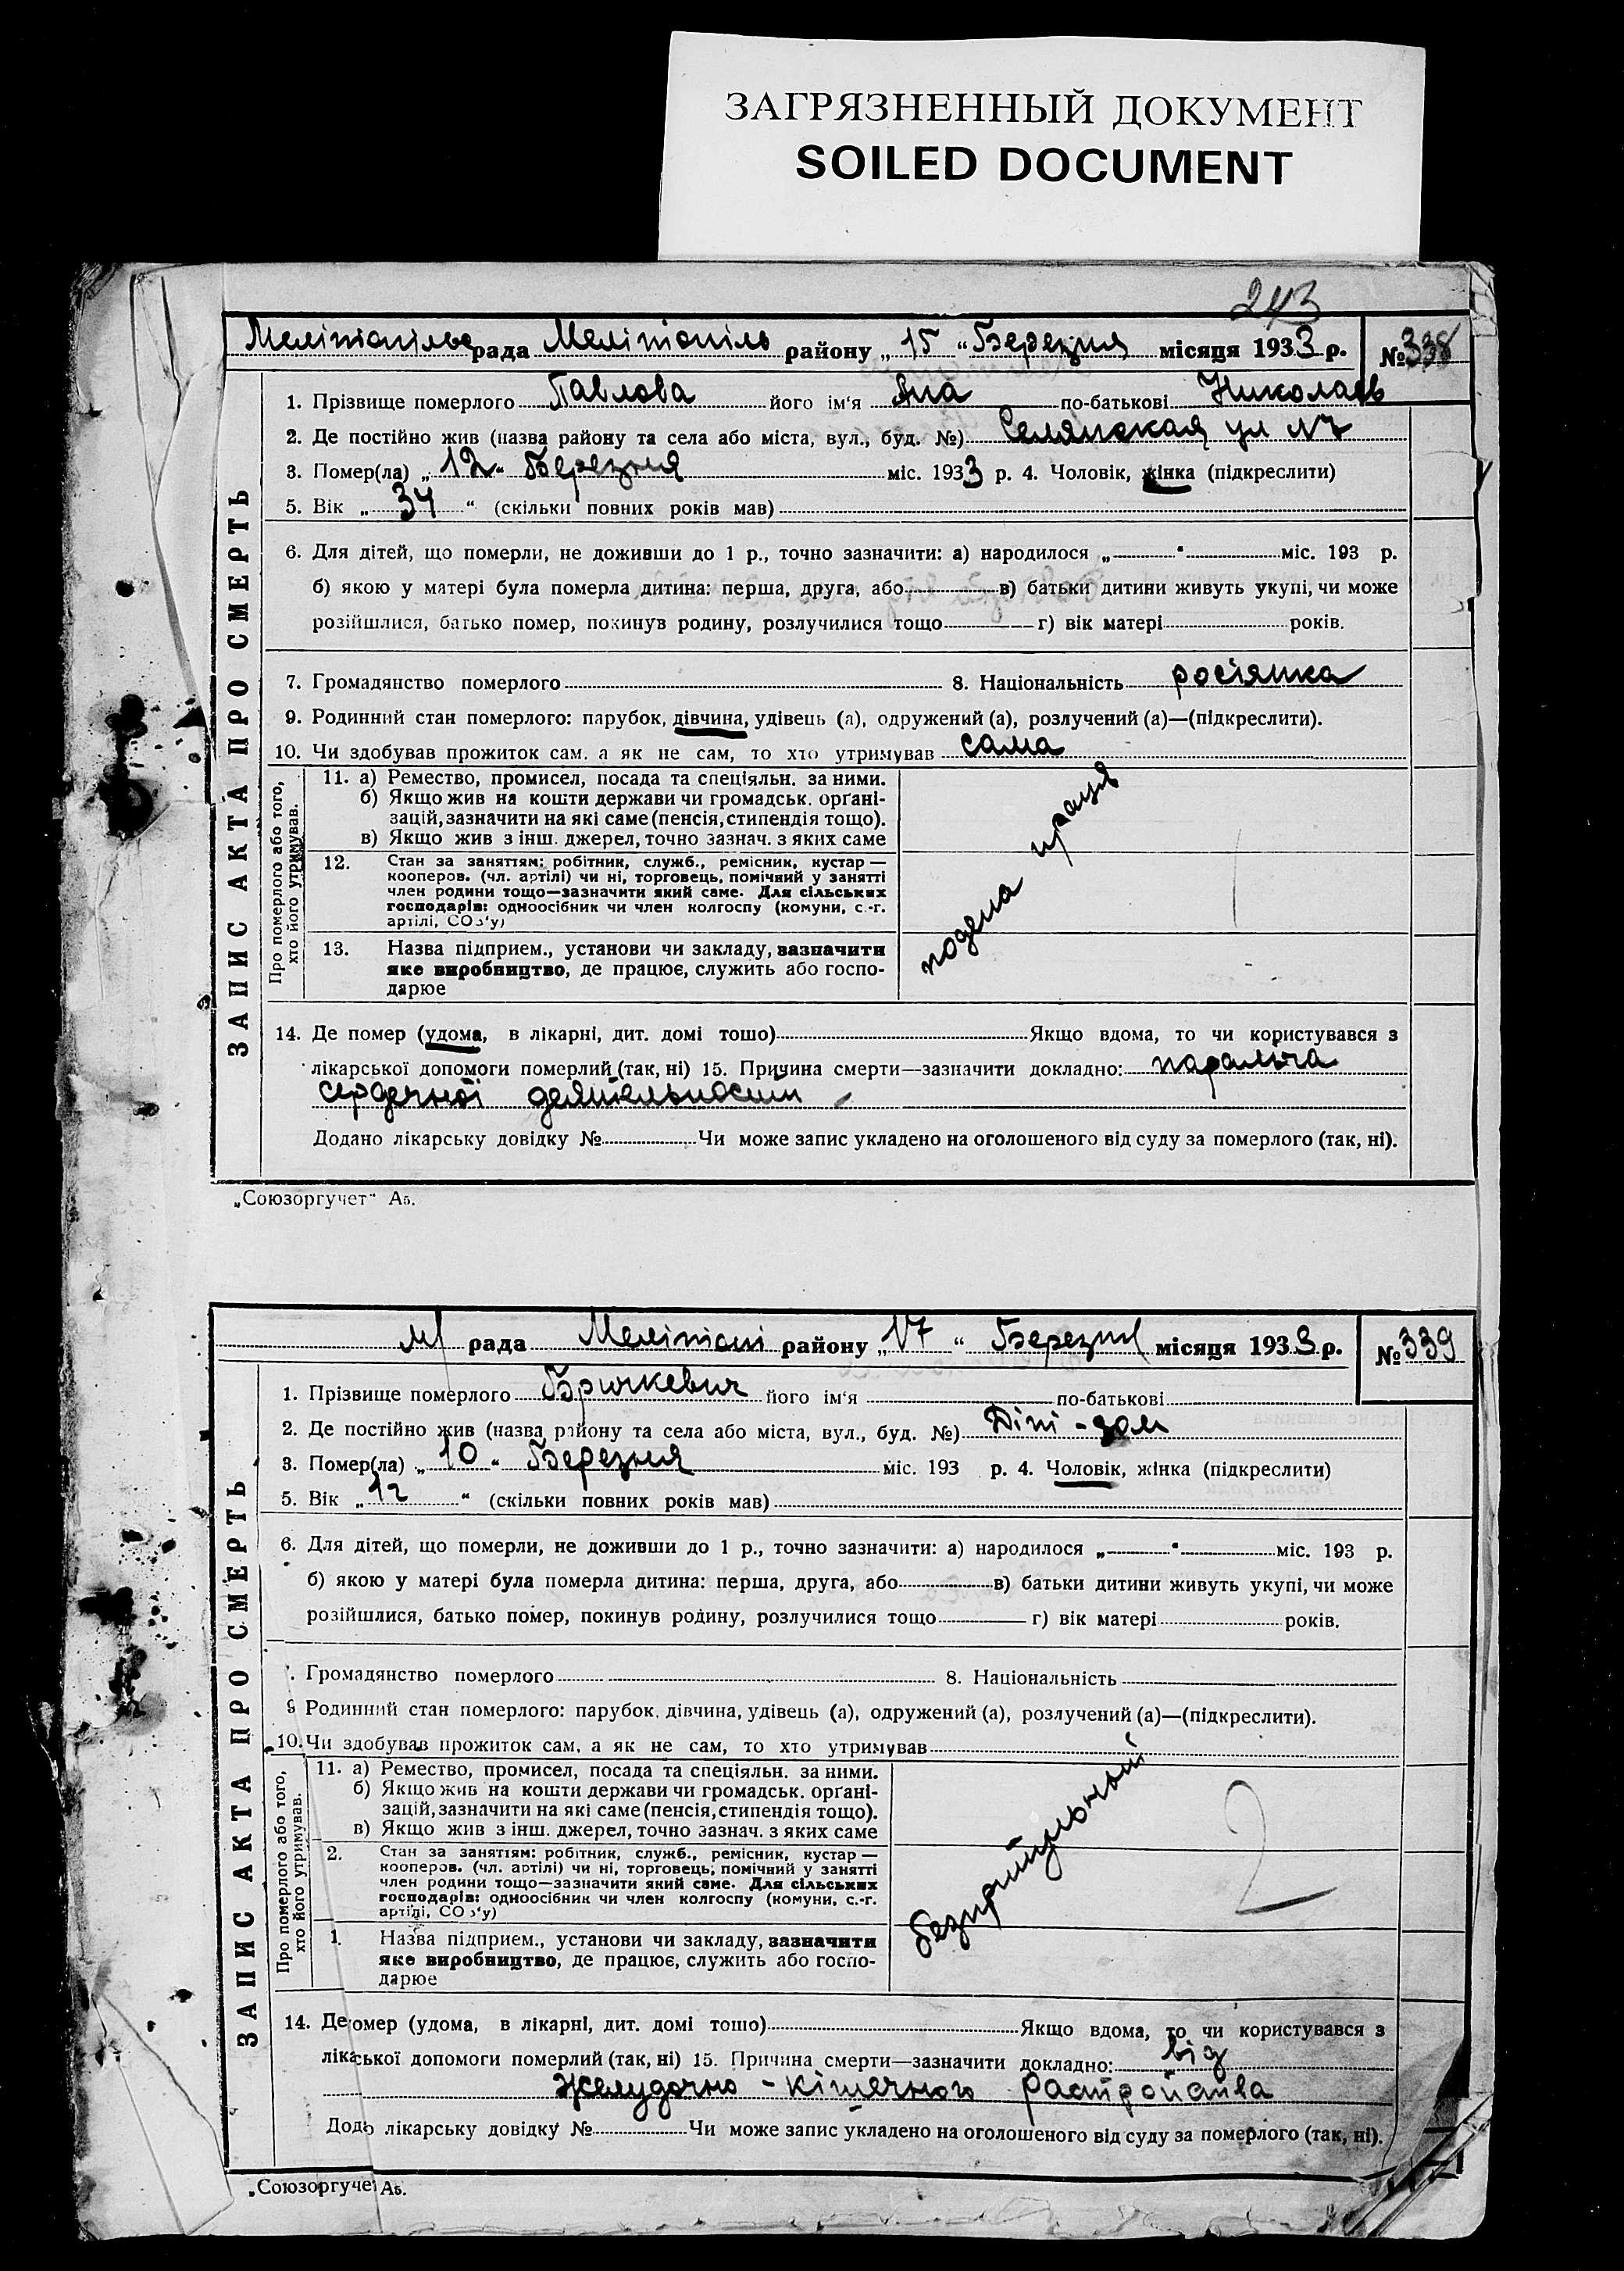 ЗАГРЯЗНЕННЫЙ ДОКУМЕНТ
SOILED DOCUMENT
243
Мелітопільс рада Мелітопіль району „ 15 “ Березня місяця 1933 р. № 338
ЗАПИС АКТА ПРО СМЕРТЬ
1. Прізвище померлого Павлова його ім‘я Яна по-батькові Николаев
2. Де постійно жив (назва району та села або міста, вул., буд. №) Селянская ул №7
3. Помер(ла) „ 12 “ Березня міс. 1933 р. 4. Чоловік, жінка (підкреслити)
5. Вік „ 34 “ (скільки повних років мав)
6. Для дітей, що померли, не доживши до 1 р., точно зазначити: а) народилося „ “ міс. 193 р.
б) якою у матері була померла дитина: перша, друга, або в) батьки дитини живуть укупі, чи може
розійшлися, батько помер, покинув родину, розлучилися тощо г) вік матері років.
7. Громадянство померлого 8. Національність росіянка
9. Родинний стан померлого: парубок, дівчина, удівець (а), одружений (а), розлучений (а)—(підкреслити).
10. Чи здобував прожиток сам, а як не сам, то хто утримував сама
Про померлого або того,
хто його утримував.
11. а) Ремество, промисел, посада та спеціяльн. за ними.
б) Якщо жив на кошти держави чи громадськ. орґані-
зацій, зазначити на які саме (пенсія, стипендія тощо).
в) Якщо жив з інш. джерел, точно зазнач. з яких саме
12. Стан за заняттям: робітник, служб., ремісник, кустар —
кооперов. (чл. артілі) чи ні, торговець, помічний у занятті
член родини тощо—зазначити який саме. Для сільських
господарів: одноосібник чи член колгоспу (комуни, с.-г.
артілі, СОЗ‘у)
13. Назва підприєм., установи чи закладу, зазначити
яке виробництво, де працює, служить або госпо-
дарює
подена праця
14. Де помер (удома, в лікарні, дит. домі тошо) Якщо вдома, то чи користувався з
лікарської допомоги померлий (так, ні) 15. Причина смерти—зазначити докладно: параліча
сердечної деятельности
Додано лікарську довідку № Чи може запис укладено на оголошеного від суду за померлого (так, ні).
„Союзоргучет“ А5.
М рада Мелітопі району „ 17 “ Березня місяця 1933 р. № 339
ЗАПИС АКТА ПРО СМЕРТЬ
1. Прізвище померлого Брюкевич його ім‘я по-батькові
2. Де постійно жив (назва району та села або міста, вул., буд. №) Діт-дом
3. Помер(ла) „ 10 “ Березня міс. 193 р. 4. Чоловік, жінка (підкреслити)
5. Вік „ 12 “ (скільки повних років мав)
6. Для дітей, що померли, не доживши до 1 р., точно зазначити: а) народилося „ “ міс. 193 р.
б) якою у матері була померла дитина: перша, друга, або в) батьки дитини живуть укупі, чи може
розійшлися, батько помер, покинув родину, розлучилися тощо г) вік матері років.
. Громадянство померлого 8. Національність
9 Родинний стан померлого: парубок, дівчина, удівець (а), одружений (а), розлучений (а)—(підкреслити).
10. Чи здобував прожиток сам, а як не сам, то хто утримував
Про померлого або того,
хто його утримував.
11. а) Ремество, промисел, посада та спеціяльн. за ними.
б) Якщо жив на кошти держави чи громадськ. орґані-
зацій, зазначити на які саме (пенсія, стипендія тощо).
в) Якщо жив з інш. джерел, точно зазнач. з яких саме
2. Стан за заняттям: робітник, служб., ремісник, кустар —
кооперов. (чл. артілі) чи ні, торговець, помічний у занятті
член родини тощо—зазначити який саме. Для сільських
господарів: одноосібник чи член колгоспу (комуни, с.-г.
артілі, СОЗ‘у)
1. Назва підприєм., установи чи закладу, зазначити
яке виробництво, де працює, служить або госпо-
дарює
безпритульный
2
14. Де омер (удома, в лікарні, дит. домі тошо) Якщо вдома, то чи користувався з
ліка ської допомоги померлий (так, ні) 15. Причина смерти—зазначити докладно: від
желудочно-кішечного растройства
Дода лікарську довідку № Чи може запис укладено на оголошеного від суду за померлого (так, ні).
„Союзоргуче А5.